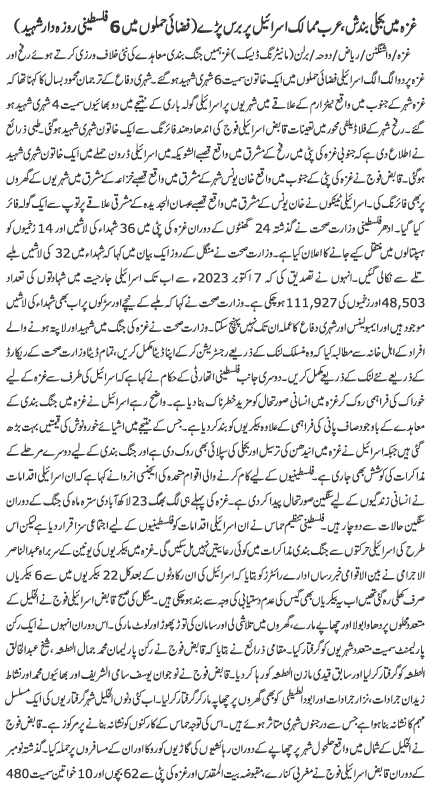 غزہ میں بجلی بندش، عرب ممالک اسرائیل پر برس پڑے (فضائی حملوں میں 6 فلسطینی روزہ دار شہید)
غزہ/واشنگٹن/ریاض/دوحہ/برلن (مانیٹرنگ ڈیسک) غزہ میں جنگ بندی معاہدے کی نئی خلاف ورزی کرتے ہوئے رفح اور
غزہ پر دو الگ الگ اسرائیلی فضائی حملوں میں ایک خاتون سمیت 6 شہری شہید ہو گئے۔ شہری دفاع کے ترجمان محمود بسال کا کہنا تھا کہ
غزہ شہر کے جنوب میں واقع نیٹزارم کے علاقے میں شہریوں پر اسرائیلی گولہ باری کے نتیجے میں دو بھائیوں سمیت 4 شہری شہید
ہو گئے۔ رفح شہر کے فلاڈیلفی محور میں تعینات قابض اسرائیلی فوج کی اندھا دھند فائرنگ سے ایک خاتون شہری شہید ہو گئی۔ طبی ذرائع
نے اطلاع دی ہے کہ جنوبی غزہ کی پٹی میں رفح کے مشرق میں واقع قصبے الشوکہ میں اسرائیلی ڈرون حملے میں ایک خاتون شہری شہید
ہو گئی۔ قابض فوج نے غزہ کی پٹی کے جنوب میں واقع خان یونس شہر کے مشرق میں واقع قصبے خزاعہ کے مشرق میں شہریوں کے گھروں
پر بھی فائرنگ کی۔ اسرائیلی ٹینکوں نے خان یونس کے مشرق میں واقع قصبے عبسان الجدیدہ کے مشرقی علاقے پر توپ سے ایک گولہ فائر
کیا۔ ادھر فلسطینی وزارت صحت نے گذشتہ 24 گھنٹوں کے دوران غزہ کی پٹی میں 36 شہداء کی لاشیں اور 14 زخمیوں کو
ہسپتالوں میں منتقل کیے جانے کا اعلان کیا ہے۔ وزارت صحت نے منگل کے روز ایک بیان میں کہا کہ شہداء میں 32 کی لاشیں ملبے
تلے سے نکالی گئیں۔ انہوں نے تصدیق کی کہ 7 اکتوبر 2023ء سے اب تک اسرائیلی جارحیت میں شہادتوں کی تعداد
48,503 اور زخمیوں کی 111,927 ہو چکی ہے۔ وزارت صحت نے کہا کہ ملبے کے نیچے اور سڑکوں پر اب بھی شہداء کی لاشیں
موجود ہیں اور ایمبولینس اور شہری دفاع کا عملہ ان تک نہیں پہنچ سکتا۔ وزارت صحت نے غزہ کی جنگ میں شہید اور لاپتہ ہونے والے
افراد کے اہل خانہ سے مطالبہ کیا کہ وہ منسلک لنک کے ذریعے رجسٹریشن کر کے اپنا ڈیٹا مکمل کریں، تمام ڈیٹا وزارت صحت کے ریکارڈ
کے ذریعے نئے لنک کے ذریعے مکمل کریں۔ دوسری جانب فلسطینی اتھارٹی کے حکام نے کہا ہے کہ اسرائیل کی طرف سے غزہ کے لیے
خوراک کی فراہمی روک کر غزہ میں انسانی صورتحال کو مزید خطرناک بنا دیا ہے۔ واضح رہے اسرائیل نے غزہ میں جنگ بندی کے
معاہدے کے باوجود صاف پانی کی فراہمی کے علاوہ بیکریوں کو بند کر دیا ہے۔ جس کے نتیجے میں اشیائے خورونوش کی قیمتیں بہت بڑھ
گئی ہیں جبکہ اسرائیل نے غزہ میں ایندھن کی ترسیل اور بجلی کی سپلائی بھی روک دی ہے اور جنگ بندی کے لیے دوسرے مرحلے کے
مذاکرات کی کوشش بھی جاری ہے۔ فلسطینیوں کے لیے کام کرنے والی اقوام متحدہ کی ایجنسی انروا نے کہا ہے کہ ان اسرائیلی اقدامات
نے انسانی زندگیوں کے لیے سنگین صورتحال پیدا کر دی ہے۔ غزہ کی پہلے ہی لگ بھگ 23 لاکھ آبادی سترہ ماہ کی جنگ کے دوران
سنگین حالات سے دوچار ہیں۔ فلسطینی تنظیم حماس نے ان اسرائیلی اقدامات کو فلسطینیوں کے لیے اجتماعی سزا قرار دیا ہے لیکن اس
طرح کی اسرائیلی حرکتوں سے جنگ بندی مذاکرات میں کوئی رعایتیں نہیں مل سکیں گی۔ غزہ میں بیکریوں کی یونین کے سربراہ عبدالناصر
الاجرامی نے بین الاقوامی خبر رساں ادارے رائٹرز کو بتایا کہ اسرائیل کی ان رکاوٹوں کے بعد کل 22 بیکریوں میں سے 6 بیکریاں
صرف کھلی رہ گئی تھیں اب یہ بیکریاں بھی گیس کی عدم دستیابی کی وجہ سے بند ہو چکی ہیں۔ منگل کی صبح قابض اسرائیلی فوج نے الخلیل کے
متعدد محلوں پر دھاوا بولا اور چھاپے مارے، گھروں میں تلاشی لی اور سامان کی توڑ پھوڑ اور لوٹ مار کی۔ اس دوران انہوں نے ایک رکن
پارلیمنٹ سمیت متعدد شہریوں کو گرفتار کیا۔ مقامی ذرائع نے بتایا کہ قابض فوج نے رکن پارلیمان محمد جمال النتشہ، شیخ عبدالخالق
النتشہ کو گرفتار کر لیا اور سابق قیدی مازن النتشہ کو رہا کر دیا۔ قابض فوج نے نوجوان یوسف سامی الحریر اور بھائیوں محمد اور نشاط
زیدان جرادات، نزار جرادات اور ابود لطیفی کو بھی ان کے گھروں پر چھاپہ مار کر گرفتار کر لیا۔ اب کئی دنوں الخلیل شہر گرفتاریوں کی ایک مسلسل
مہم کا نشانہ بنا ہوا ہے، جس سے درجنوں شہری متاثر ہوئے ہیں۔ اس کی توجہ حماس کے کارکنوں کو نشانہ بنانے پر مرکوز ہے۔ قابض فوج
نے الخلیل کے شمال میں واقع حلحول شہر پر چھاپے کے دوران رہائشیوں کی گاڑیوں کو روکا اور ان کے مسافروں پر حملہ کیا۔ گذشتہ نومبر
کے دوران قابض اسرائیلی فوج نے مغربی کنارے، مقبوضہ بیت المقدس اور غزہ کی پٹی سے 62 بچوں اور 10 خواتین سمیت 480